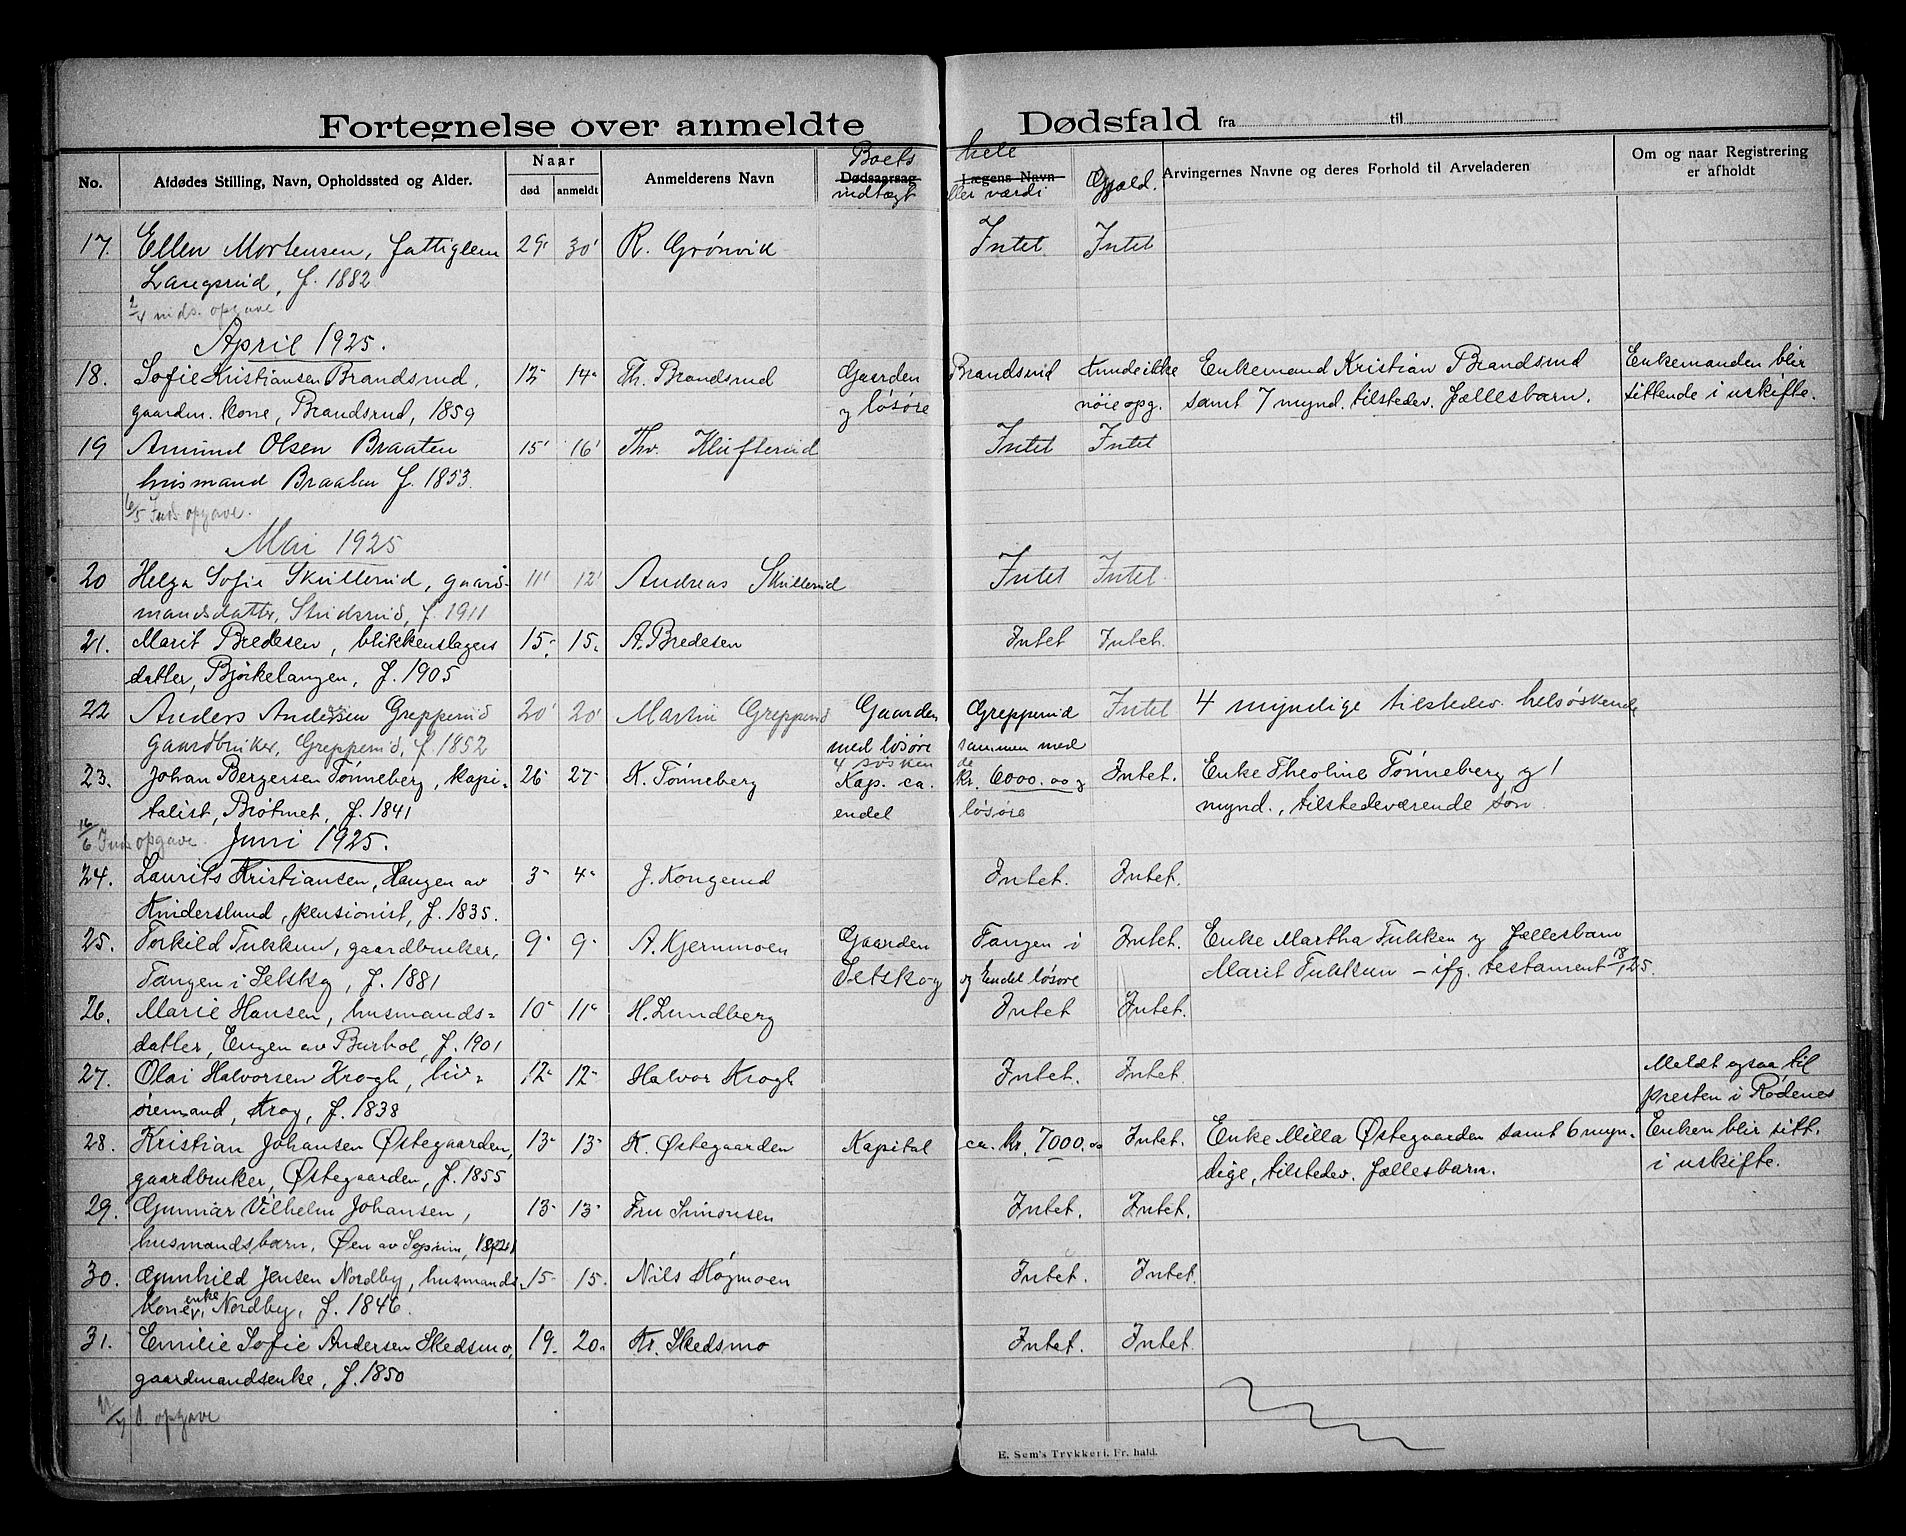 Fortegnelse over anmeldte Dødsfald fra til
No. Afdødes Stilling, Navn, Opholdssted og Alder. Naar død anmeldt Anmelderens Navn Dødsaarsag Lægens Navn Arvingernes Navne og deres Forhold til Arveladeren Om og naar Registrering er afholdt
Boets hele
indtægt eller værdi Gjæld.
17. Ellen Mortensen, fattiglem 29' 30' R. Grönvik Intet. Intet
Langsrud, f. 1882
2/4 inds. opgave
April 1925.
18. Sofie Kristiansen Brandsrud, 13- 14- Th. Brandsrud Gaarden Brandsrud Kunde ikke Enkemand Kristian Brandsrud Enkemanden blir
gaardm. kone, Brandsrud, 1859 og løsøre nöie opg. samt 7 mynd. tilstedev. fællesbarn. sittende i uskifte.
19 Amund Olsen Braaten 15' 16' Thv. Klufterud Intet Intet
husmand Braaten f. 1853.
6/5 Inds opgave.
Mai 1925
20 Helga Sofie Skullerud, gaard- 11' 12' Andreas Skullerud Intet Intet.
mandsdatter, Stidsrud, f. 1911
21. Marit Bredesen, blikkenslagers 15- 15. A. Bredesen Intet Intet.
datter, Bjørkelangen, f. 1905
22 Anders Andersen Grepperud 20' 20' Martin Grepperud Gaarden Grepperud Intet 4 myndige tilstedev. helsøskende
gaardbruker, Grepperud, f. 1852 med løsøre sammen med
4 søskende
23. Johan Bergersen Tønneberg, kapi- 26- 27- K. Tønneberg Kap. ca. kr. 6000.00 og Intet. Enke Theoline Tønneberg og 1
talist, Brøtmet, f. 1841 endel løsøre mynd., tilstedeværende søn.
16/6 Inds opgave. Juni 1925.
24. Laurits Kristiansen, Haugen av 3- 4- J. Kongerud Intet. Intet.
Kinderslund, pensionist, f. 1835.
25. Torkild Tukkun, gaardbruker, 9- 9- A. Kjernmoen Gaarden Tangen i Intet. Enke Martha Tukken og fællesbarn
Tangen i Setskog, f. 1881 Setskog og Endel løsøre Marit Tukkun – ifg. testament 25.
26. Marie Hansen, husmands- 10- 11- H. Lundberg Intet Intet.
datter, Engen av Burhol, f. 1901
27. Olai Halvorsen Krogh, liv- 12- 12- Halvor Krogh Intet. Intet. Meldt ogsaa til
øremand, Krog, f. 1838 presten i Rødenes
28. Kristian Johansen Østegaarden, 13- 13- K. Østegaarden Kapital ca. kr. 7000.00 Intet. Enke Milla Østegaarden samt 6 myn- Enken blir sitt.
gaardbruker, Østegaarden, f. 1855 dige, tilstedev. fællesbarn. i uskifte.
29. Gunnar Vilhelm Johansen, 13- 13- Fru Simonsen Intet. Intet.
husmandsbarn, Øen av
30. Gunhild Jensen Nordby, husmands- 15- 15. Nils Høgmoen Intet. Intet.
kone, enke, Nordby, f. 1846.
31. Emilie Sofie Andersen Skedsmo, 19. 20. Kr. Skedsmo Intet. Intet.
gaardmandsenke, f. 1850
opgave
E. Sem's Trykkeri, Fr.hald.